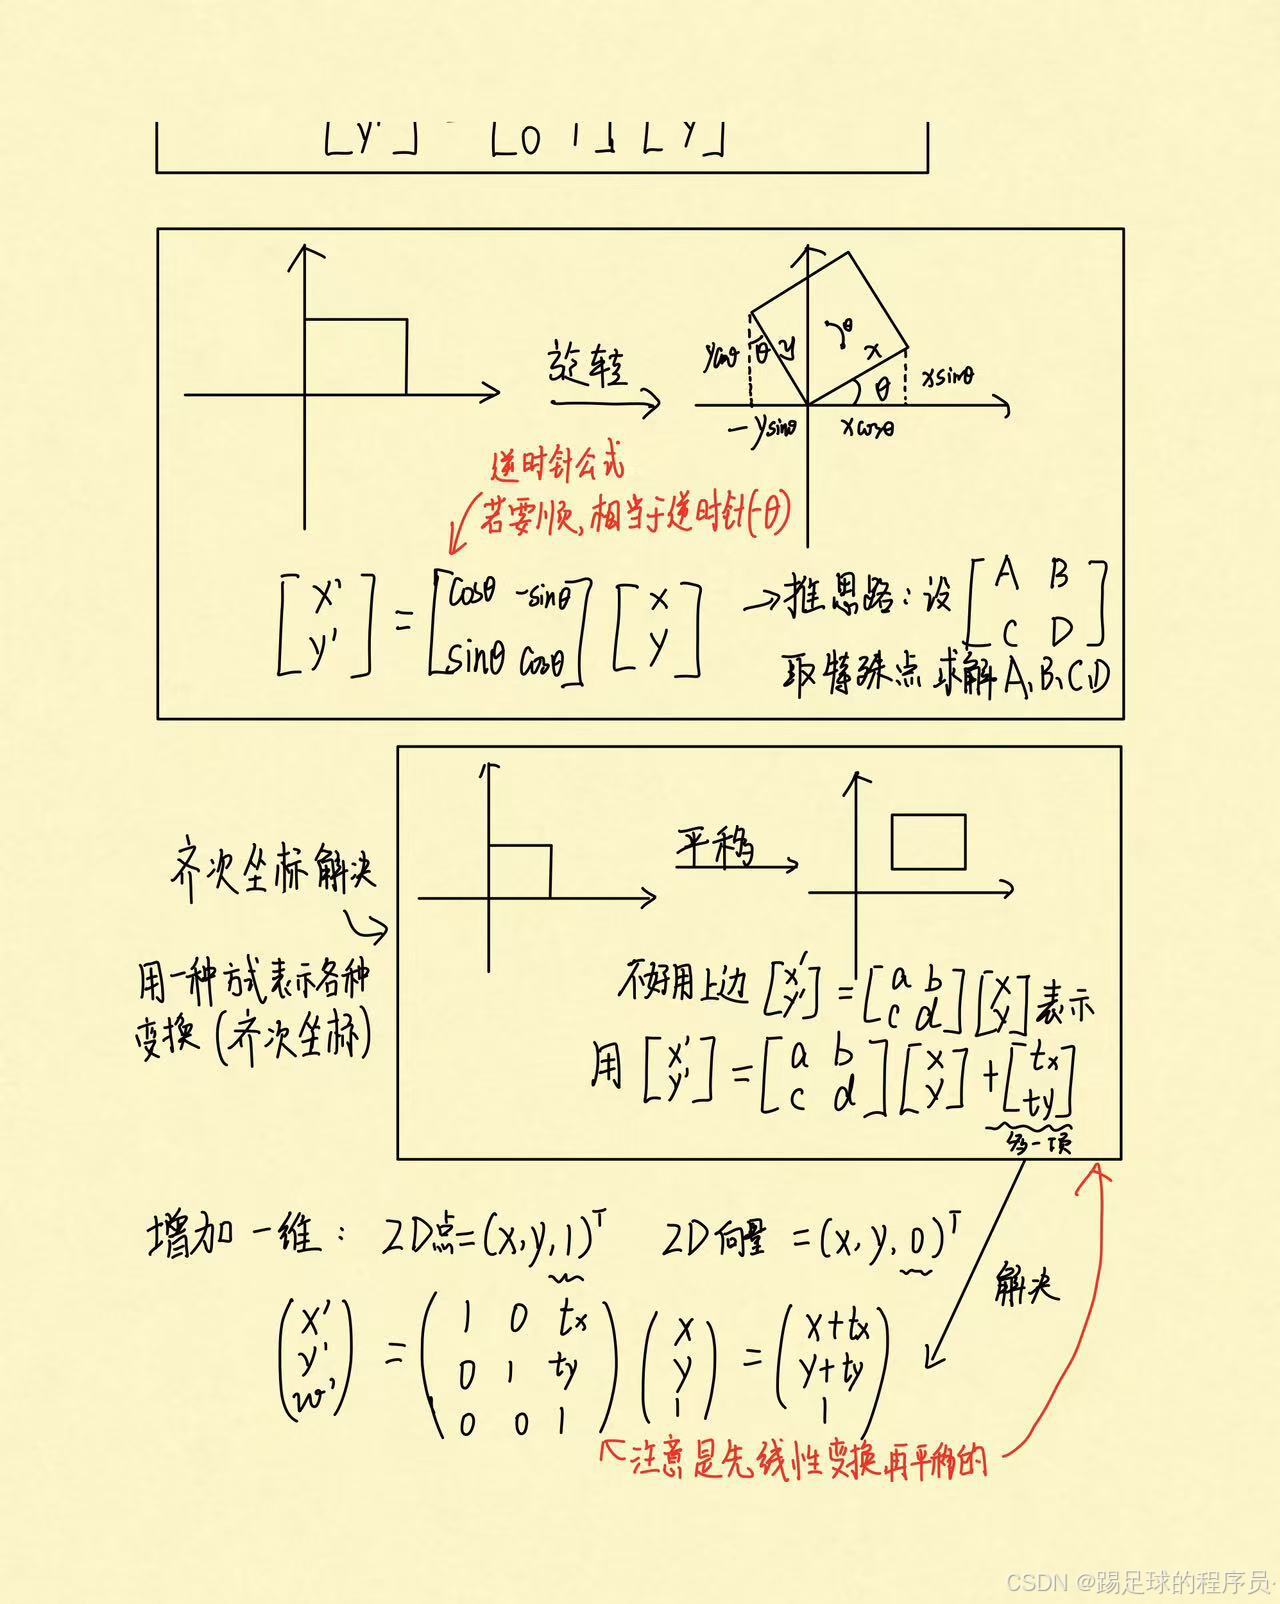 [y'] [0 1] [y]
旋转
ycosθ θ y θ x θ xsinθ
-ysinθ xcosθ
逆时针公式
若要顺,相当于逆时针(-θ)
[x' y'] = [cosθ -sinθ sinθ cosθ] [x y] → 推思路:设 [A B C D]
取特殊点 求解A、B、C、D
平移
齐次坐标解决
用一种方式表示各种
变换(齐次坐标)
不好用上边 [x' y'] = [a b c d] [x y] 表示
用 [x' y'] = [a b c d] [x y] + [tx ty]
多一项
增加一维: 2D点=(x,y,1)ᵀ 2D向量=(x,y,0)ᵀ
解决
(x' y' w') = (1 0 tx 0 1 ty 0 0 1) (x y 1) = (x+tx y+ty 1)
注意是先线性变换再平移的
CSDN @踢足球的程序员·